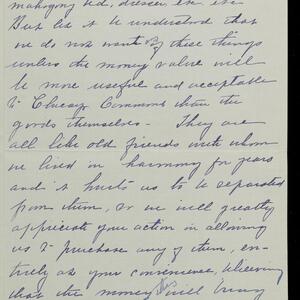 mahogany bed, dresser, etc etc.
But let it be understood that
we do not want any of these things
unless the money value will
be more useful and acceptable
to Chicago Commons than the
goods themselves - They are
all like old friends with whom
we lived in harmony for years
and it hurts us to be separated
from them, so we will greatly
appreciate your action in allowing
us to purchase any of them, en-
tirely at your convenience, believing
that the money will bring